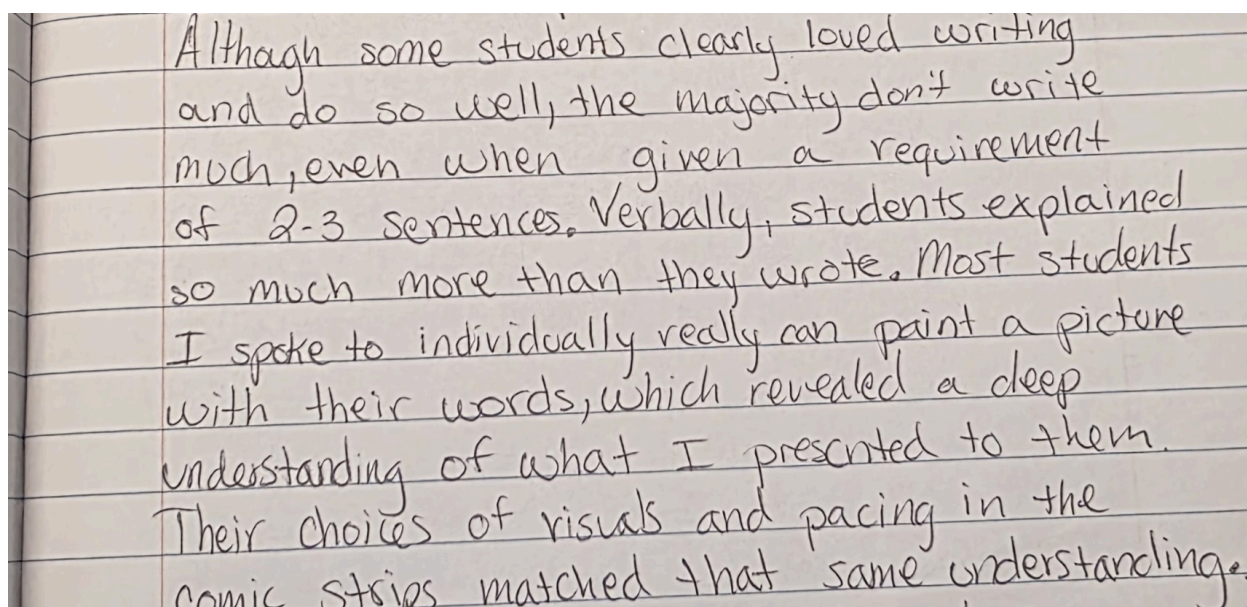 Although some students clearly loved writing
and do so well, the majority don't write
much, even when given a requirement
of 2-3 sentences. Verbally, students explained
so much more than they wrote. Most students
I spoke to individually really can paint a picture
with their words, which revealed a deep
understanding of what I presented to them.
Their choices of visuals and pacing in the
comic strips matched that same understanding.